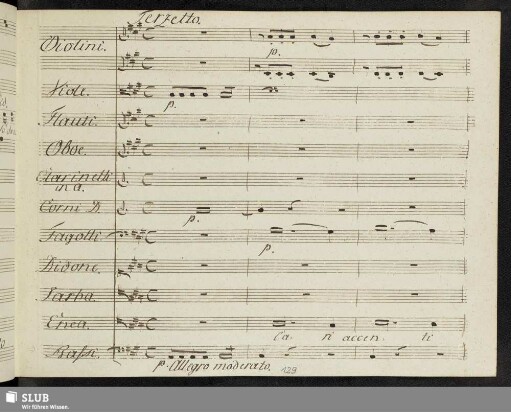 Terzetto.
Violini.
p.
Viole.
p.
Flauti.
Oboe.
Clarinetti
in a.
Corni D.
p.
Fagotti
p.
Didone.
Jarba.
Enea.
Ca- ri accen- ti
Bassi.
p. Allegro moderato.
129
SLUB
Wir führen Wissen.